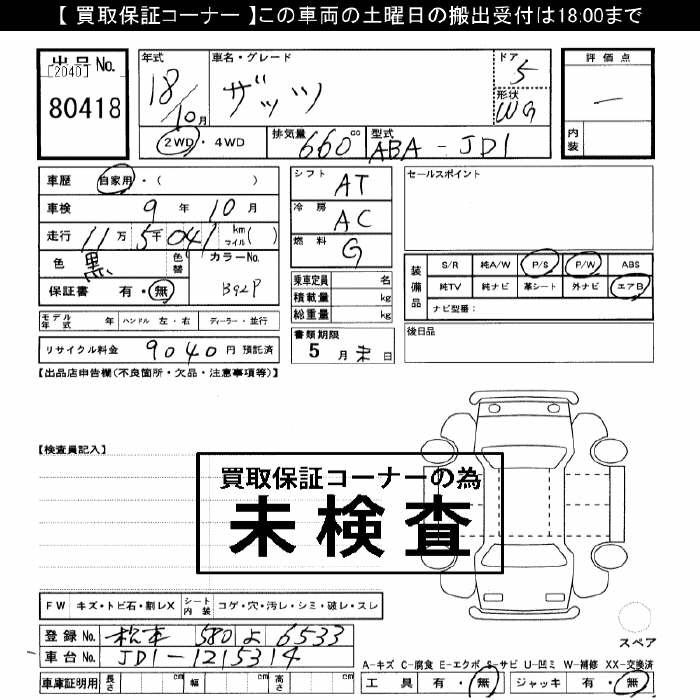 【 買取保証コーナー 】この車両の土曜日の搬出受付は18:00まで
出品No.
[2040]
80418
年式 18/10月
車名・グレード ザッツ
ドア 5
形状 WG
2WD・4WD
排気量 660cc
型式 ABA-JD1
評価点 —
内装
車歴 自家用・( )
車検 9年10月
走行 11万5千041 km マイル( )
色 黒
色替
カラーNo. B92P
保証書 有・無
シフト AT
冷房 AC
燃料 G
乗車定員 名
積載量 kg
総重量 kg
セールスポイント
装備品
S/R 純A/W P/S P/W ABS
純TV 純ナビ 革シート 外ナビ エアB
ナビ型番:
モデル年式 年 ハンドル 左・右 ディーラー・並行
リサイクル料金 9040円 預託済
書類期限 5月末日
後日品
【出品店申告欄(不良箇所・欠品・注意事項等)】
【検査員記入】
買取保証コーナーの為
未検査
FW キズ・トビ石・割レX シート内装 コゲ・穴・汚レ・シミ・破レ・スレ
登録No. 松本 580 よ 6533
車台No. JD1-1215314
車庫証明用 長さ cm 幅 cm 高さ cm
スペア
A-キズ C-腐食 E-エクボ S-サビ U-凹ミ W-補修 XX-交換済
工具 有・無 ジャッキ 有・無